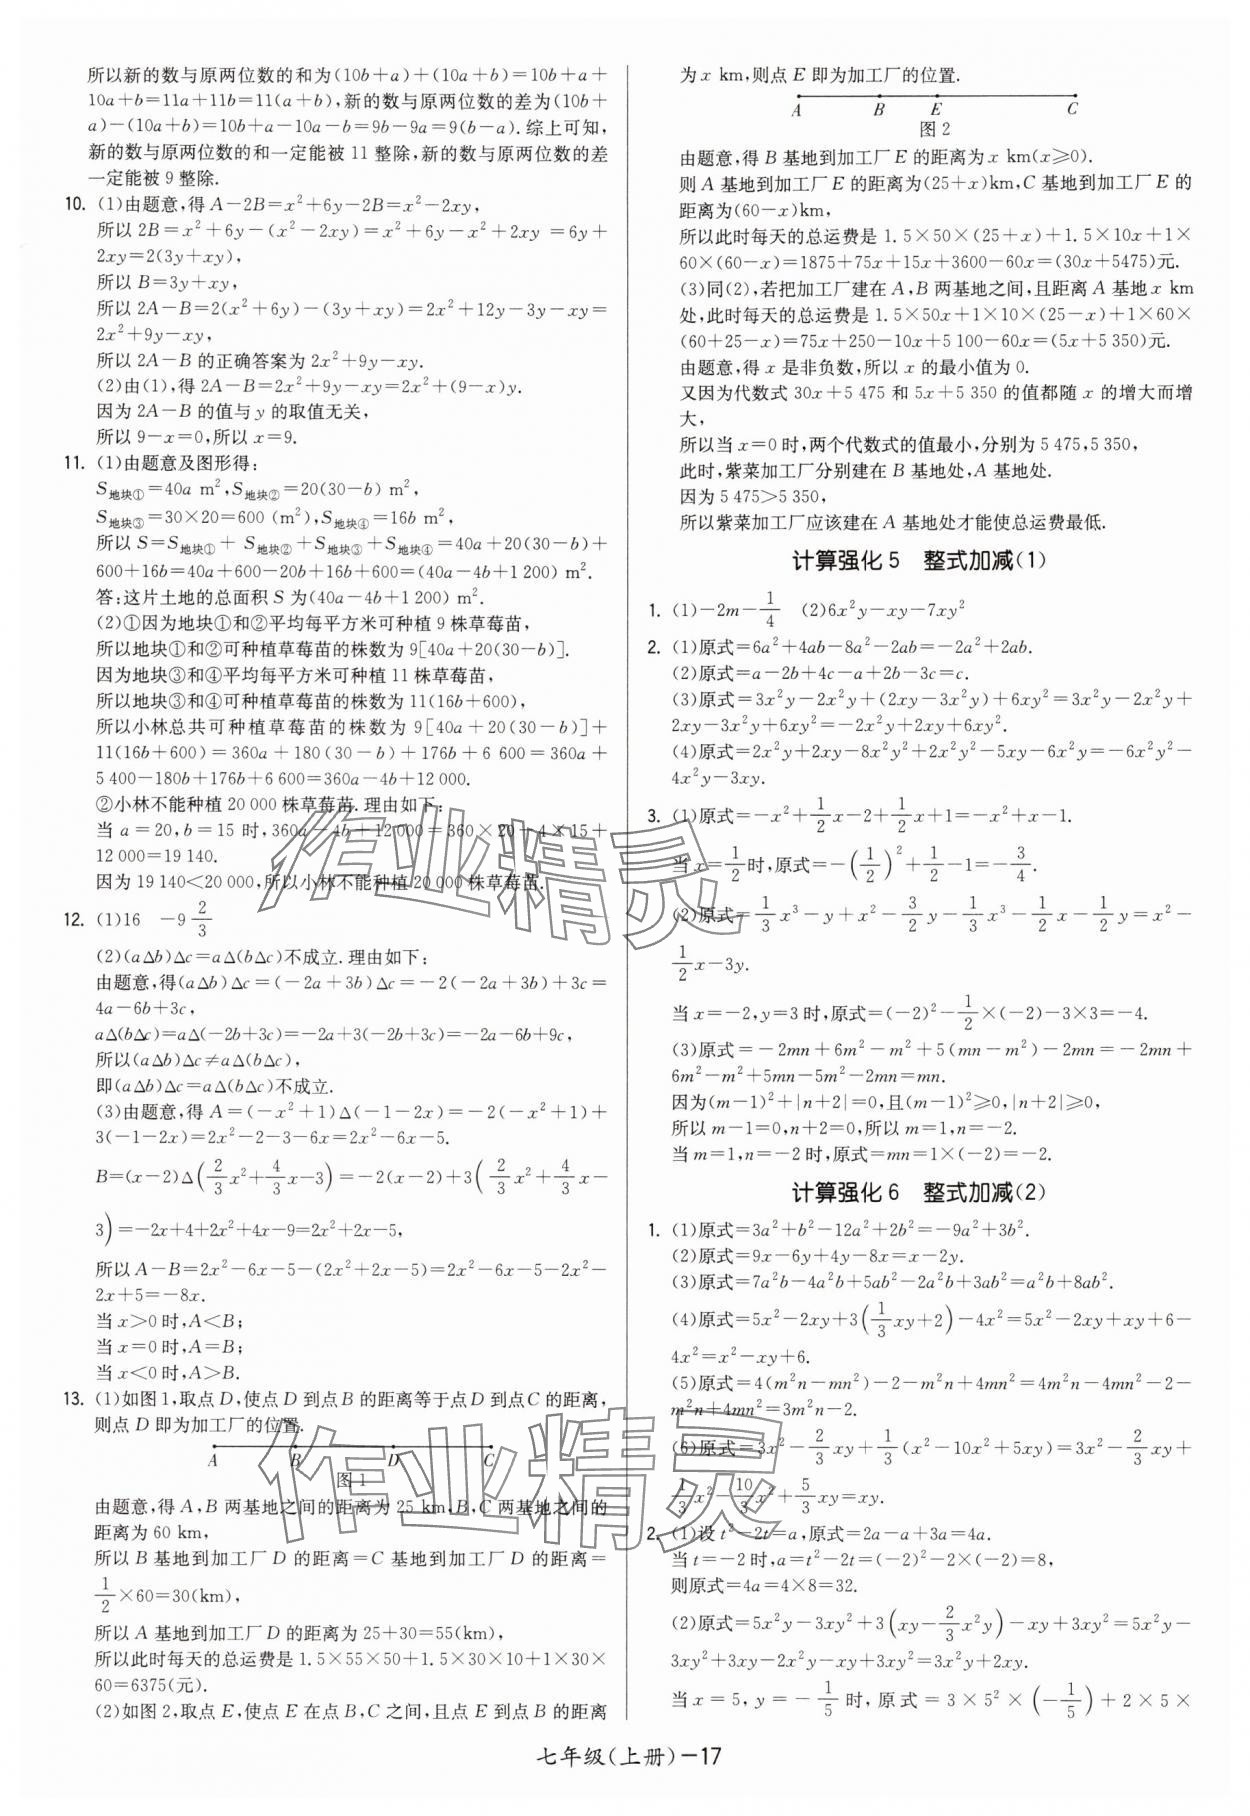 所以新的数与原两位数的和为(10b+a)+(10a+b)=10b+a+
10a+b=11a+11b=11(a+b),新的数与原两位数的差为(10b+
a)-(10a+b)=10b+a-10a-b=9b-9a=9(b-a).综上可知,
新的数与原两位数的和一定能被 11 整除,新的数与原两位数的差
一定能被 9 整除.
10. (1)由题意,得 A-2B=x²+6y-2B=x²-2xy,
所以 2B=x²+6y-(x²-2xy)=x²+6y-x²+2xy=6y+
2xy=2(3y+xy),
所以 B=3y+xy,
所以 2A-B=2(x²+6y)-(3y+xy)=2x²+12y-3y-xy=
2x²+9y-xy,
所以 2A-B 的正确答案为 2x²+9y-xy.
(2)由(1),得 2A-B=2x²+9y-xy=2x²+(9-x)y.
因为 2A-B 的值与 y 的取值无关,
所以 9-x=0,所以 x=9.
11. (1)由题意及图形得:
S地块①=40a m²,S地块②=20(30-b) m²,
S地块③=30×20=600 (m²),S地块④=16b m²,
所以 S=S地块①+S地块②+S地块③+S地块④=40a+20(30-b)+
600+16b=40a+600-20b+16b+600=(40a-4b+1 200) m².
答:这片土地的总面积 S 为(40a-4b+1 200) m².
(2)①因为地块①和②平均每平方米可种植 9 株草莓苗,
所以地块①和②可种植草莓苗的株数为 9[40a+20(30-b)].
因为地块③和④平均每平方米可种植 11 株草莓苗,
所以地块③和④可种植草莓苗的株数为 11(16b+600),
所以小林总共可种植草莓苗的株数为 9[40a+20(30-b)]+
11(16b+600)=360a+180(30-b)+176b+6 600=360a+
5 400-180b+176b+6 600=360a-4b+12 000.
②小林不能种植 20 000 株草莓苗.理由如下:
当 a=20,b=15 时,360a-4b+12 000=360×20-4×15+
12 000=19 140.
因为 19 140<20 000,所以小林不能种植 20 000 株草莓苗.
12. (1)16 -9 2/3
(2)(a△b)△c=a△(b△c)不成立.理由如下:
由题意,得(a△b)△c=(-2a+3b)△c=-2(-2a+3b)+3c=
4a-6b+3c,
a△(b△c)=a△(-2b+3c)=-2a+3(-2b+3c)=-2a-6b+9c,
所以(a△b)△c≠a△(b△c),
即(a△b)△c=a△(b△c)不成立.
(3)由题意,得 A=(-x²+1)△(-1-2x)=-2(-x²+1)+
3(-1-2x)=2x²-2-3-6x=2x²-6x-5.
B=(x-2)△(2/3x²+4/3x-3)=-2(x-2)+3(2/3x²+4/3x-
3)=-2x+4+2x²+4x-9=2x²+2x-5,
所以 A-B=2x²-6x-5-(2x²+2x-5)=2x²-6x-5-2x²-
2x+5=-8x.
当 x>0 时,A<B;
当 x=0 时,A=B;
当 x<0 时,A>B.
13. (1)如图 1,取点 D,使点 D 到点 B 的距离等于点 D 到点 C 的距离,
则点 D 即为加工厂的位置.
A B D C
图 1
由题意,得 A,B 两基地之间的距离为 25 km,B,C 两基地之间的
距离为 60 km,
所以 B 基地到加工厂 D 的距离=C 基地到加工厂 D 的距离=
1/2×60=30(km),
所以 A 基地到加工厂 D 的距离为 25+30=55(km),
所以此时每天的总运费是 1.5×55×50+1.5×30×10+1×30×
60=6375(元).
(2)如图 2,取点 E,使点 E 在点 B,C 之间,且点 E 到点 B 的距离
为 x km,则点 E 即为加工厂的位置.
A B E C
图 2
由题意,得 B 基地到加工厂 E 的距离为 x km(x≥0).
则 A 基地到加工厂 E 的距离为(25+x)km,C 基地到加工厂 E 的
距离为(60-x)km,
所以此时每天的总运费是 1.5×50×(25+x)+1.5×10x+1×
60×(60-x)=1875+75x+15x+3600-60x=(30x+5475)元.
(3)同(2),若把加工厂建在 A,B 两基地之间,且距离 A 基地 x km
处,此时每天的总运费是 1.5×50x+1×10×(25-x)+1×60×
(60+25-x)=75x+250-10x+5 100-60x=(5x+5 350)元.
由题意,得 x 是非负数,所以 x 的最小值为 0.
又因为代数式 30x+5 475 和 5x+5 350 的值都随 x 的增大而增
大,
所以当 x=0 时,两个代数式的值最小,分别为 5 475,5 350,
此时,紫菜加工厂分别建在 B 基地处,A 基地处.
因为 5 475>5 350,
所以紫菜加工厂应该建在 A 基地处才能使总运费最低.
计算强化 5 整式加减(1)
1. (1)-2m-1/4 (2)6x²y-xy-7xy²
2. (1)原式=6a²+4ab-8a²-2ab=-2a²+2ab.
(2)原式=a-2b+4c-a+2b-3c=c.
(3)原式=3x²y-2x²y+(2xy-3x²y)+6xy²=3x²y-2x²y+
2xy-3x²y+6xy²=-2x²y+2xy+6xy².
(4)原式=2x²y+2xy-8x²y²+2x²y²-5xy-6x²y=-6x²y²-
4x²y-3xy.
3. (1)原式=-x²+1/2x-2+1/2x+1=-x²+x-1.
当 x=1/2时,原式=-(1/2)²+1/2-1=-3/4.
(2)原式=1/3x³-y+x²-3/2y-1/3x³-1/2x-1/2y=x²-
1/2x-3y.
当 x=-2,y=3 时,原式=(-2)²-1/2×(-2)-3×3=-4.
(3)原式=-2mn+6m²-m²+5(mn-m²)-2mn=-2mn+
6m²-m²+5mn-5m²-2mn=mn.
因为(m-1)²+|n+2|=0,且(m-1)²≥0,|n+2|≥0,
所以 m-1=0,n+2=0,所以 m=1,n=-2.
当 m=1,n=-2 时,原式=mn=1×(-2)=-2.
计算强化 6 整式加减(2)
1. (1)原式=3a²+b²-12a²+2b²=-9a²+3b².
(2)原式=9x-6y+4y-8x=x-2y.
(3)原式=7a²b-4a²b+5ab²-2a²b+3ab²=a²b+8ab².
(4)原式=5x²-2xy+3(1/3xy+2)-4x²=5x²-2xy+xy+6-
4x²=x²-xy+6.
(5)原式=4(m²n-mn²)-2-m²n+4mn²=4m²n-4mn²-2-
m²n+4mn²=3m²n-2.
(6)原式=3x²-2/3xy+1/3(x²-10x²+5xy)=3x²-2/3xy+
1/3x²-10/3x²+5/3xy=xy.
2. (1)设 t²-2t=a,原式=2a-a+3a=4a.
当 t=-2 时,a=t²-2t=(-2)²-2×(-2)=8,
则原式=4a=4×8=32.
(2)原式=5x²y-3xy²+3(xy-2/3x²y)-xy+3xy²=5x²y-
3xy²+3xy-2x²y-xy+3xy²=3x²y+2xy.
当 x=5,y=-1/5时,原式=3×5²×(-1/5)+2×5×
七年级(上册)-17
作业精灵
作业精灵